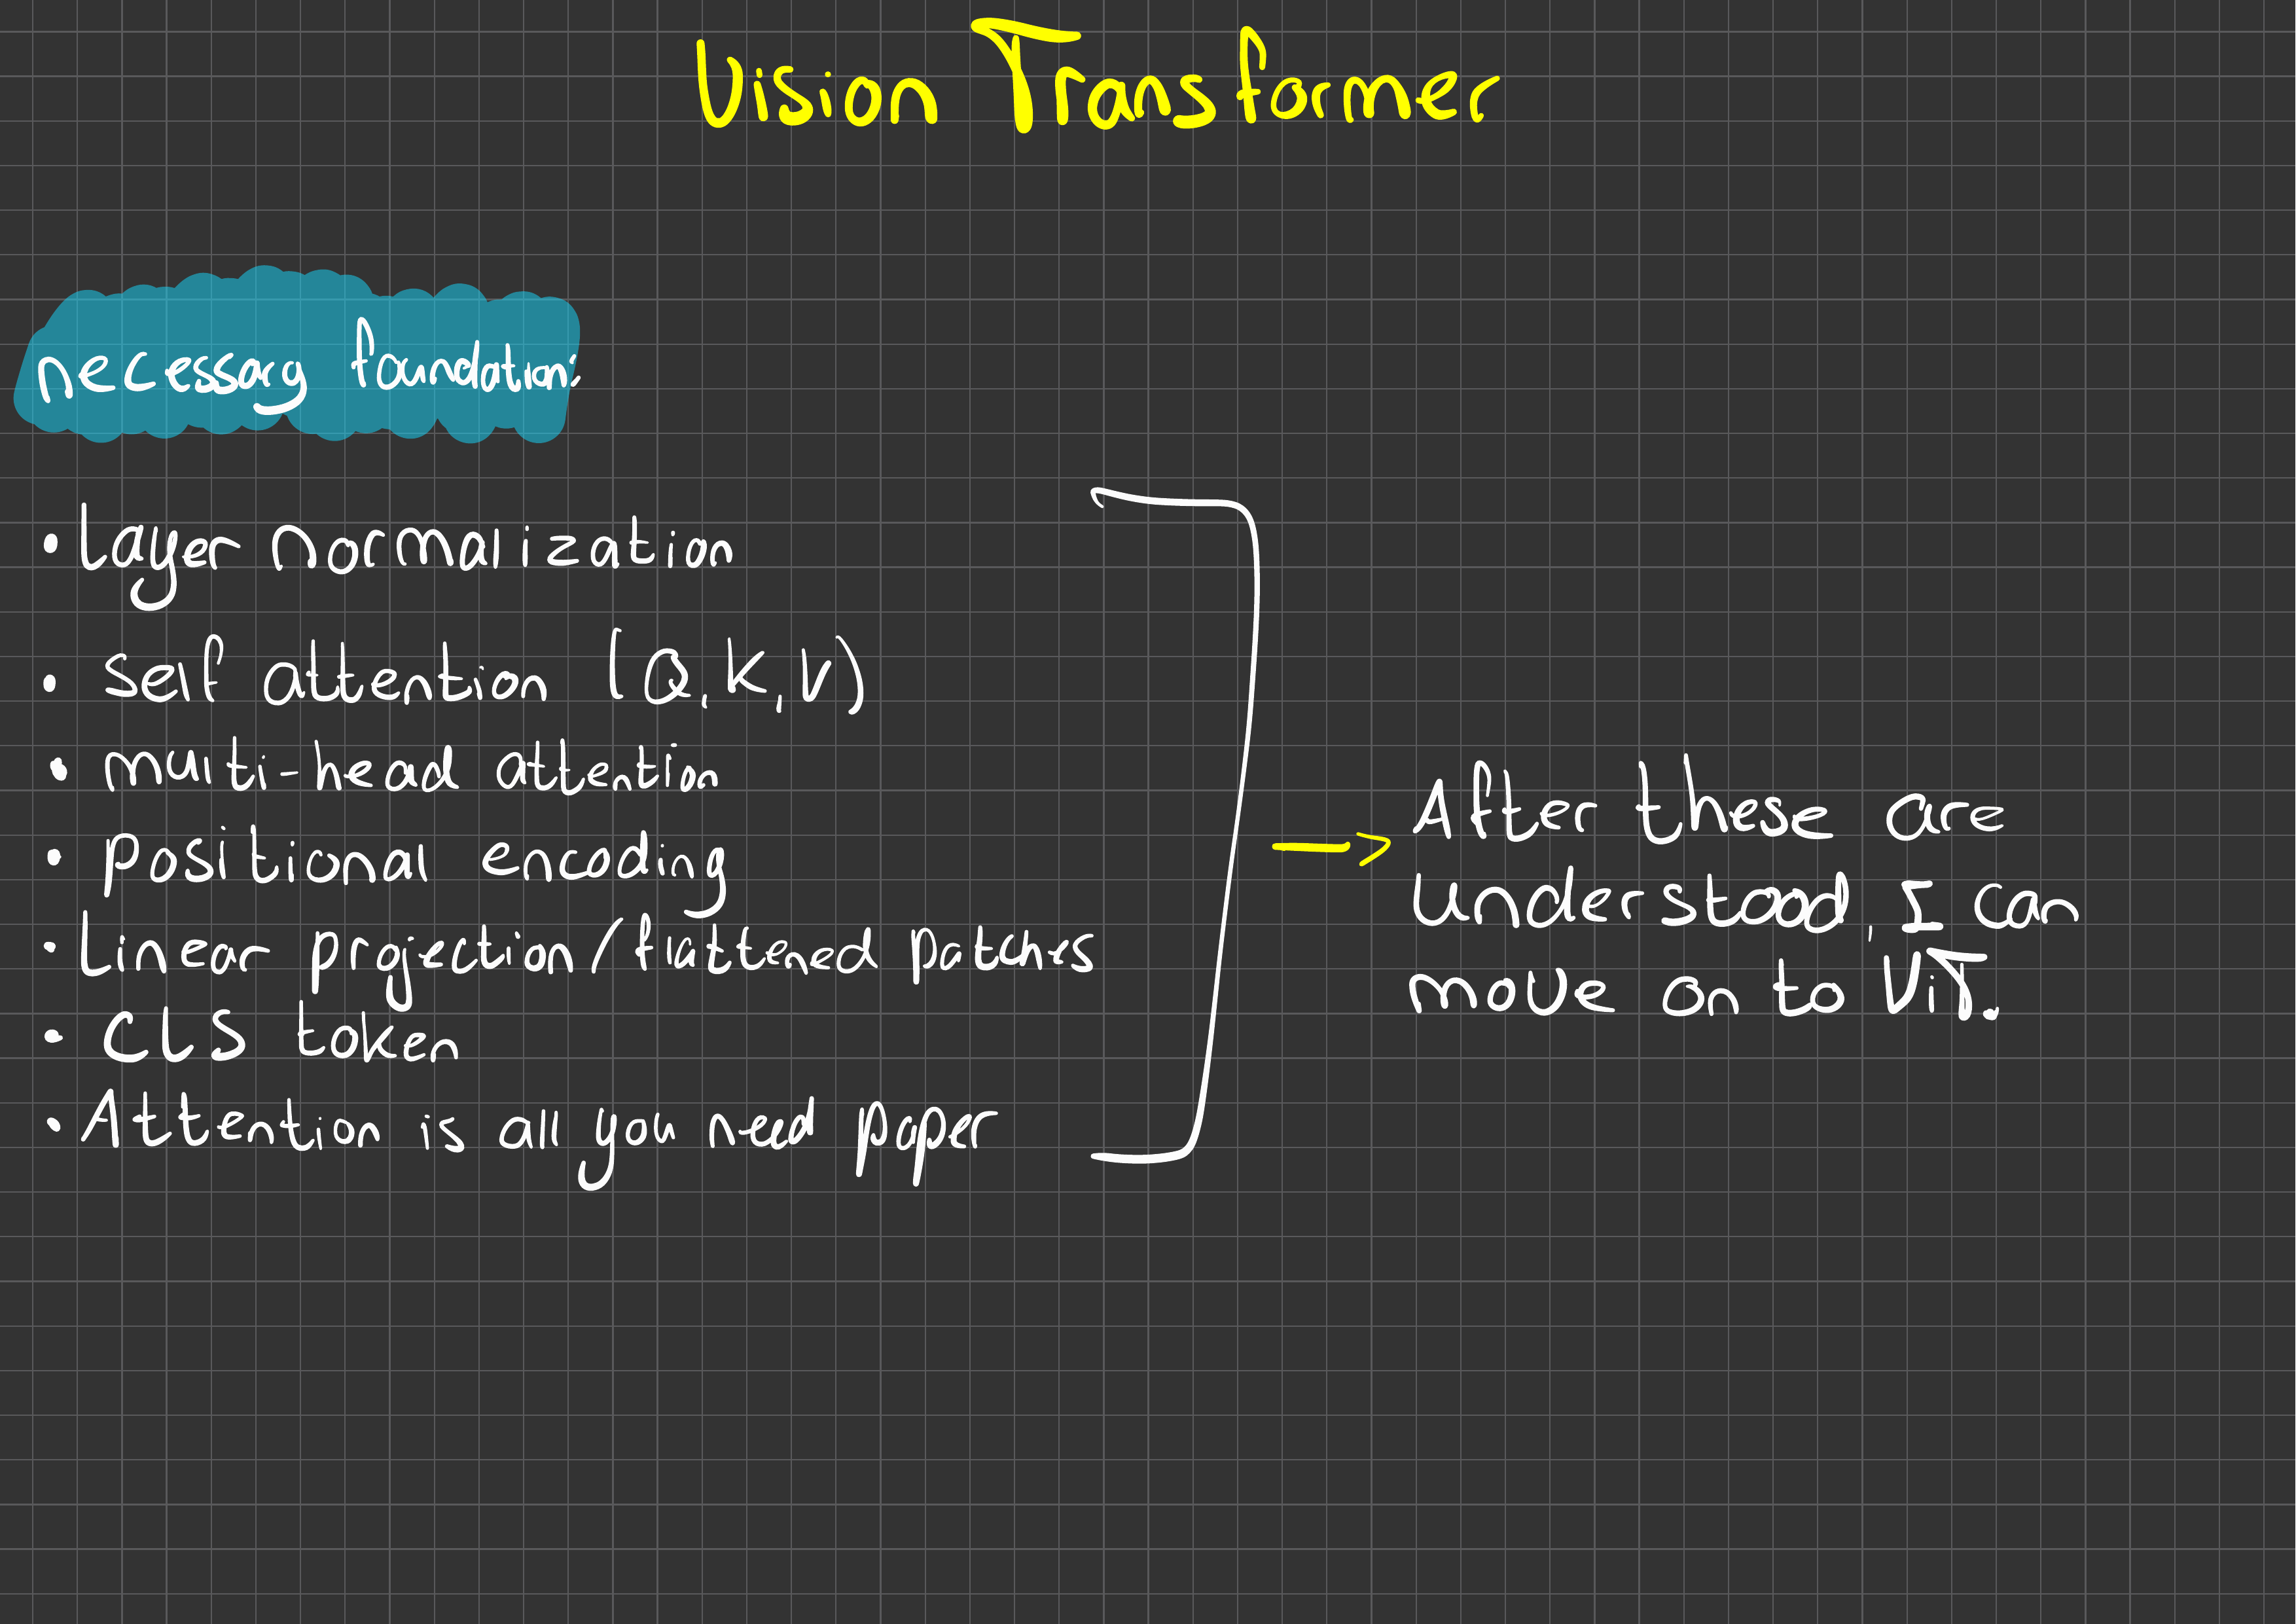 Vision Transformer
necessary foundation:
• Layer normalization
• Self attention (Q, K, V)
• multi-head attention
• positional encoding
• Linear projection/flattened patches
• CLS token
• Attention is all you need paper
→ After these are
understood, I can
move on to ViT.